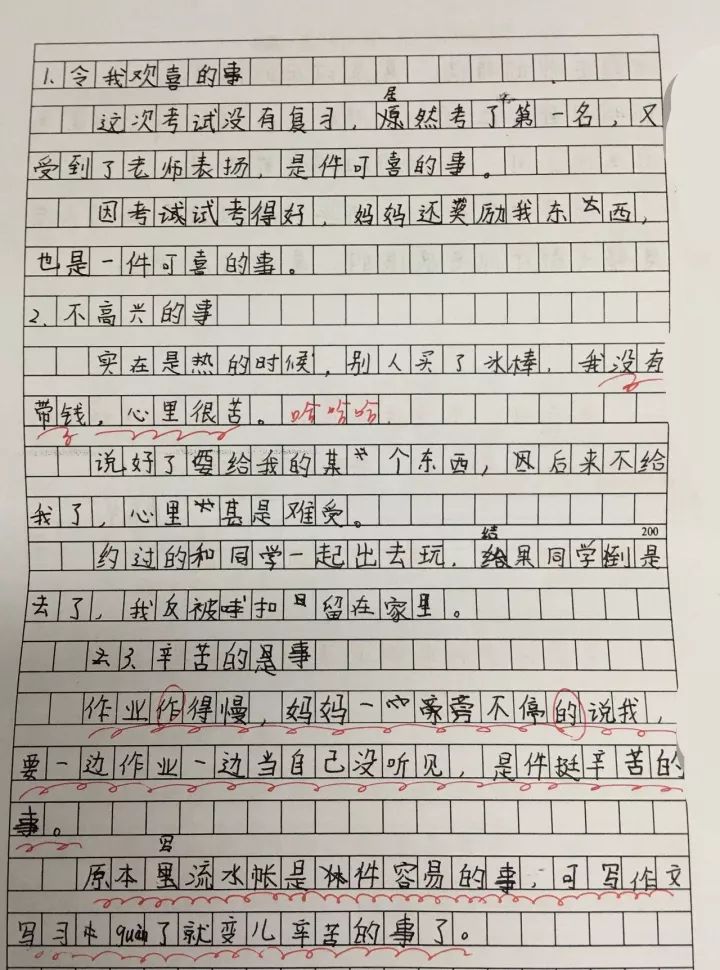 1. 令我欢喜的事
这次考试没有复习，居然考了第一名，又
受到了老师表扬，是件可喜的事。
因考试考得好，妈妈还奖励我东西，
也是一件可喜的事。
2. 不高兴的事
实在是热的时候，别人买了冰棒，我没有
带钱，心里很苦。哈哈哈
说好了要给我的某个东西，因后来不给
我了，心里甚是难受。
200
约过的和同学一起出去玩，结果同学倒是
去了，我反被扣留在家里。
3、辛苦的事
作业作得慢，妈妈一旁不停的说我，
要一边作业一边当自己没听见，是件挺辛苦的
事。
原本写流水帐是件容易的事，可写作文
写习quàn了就变儿辛苦的事了。